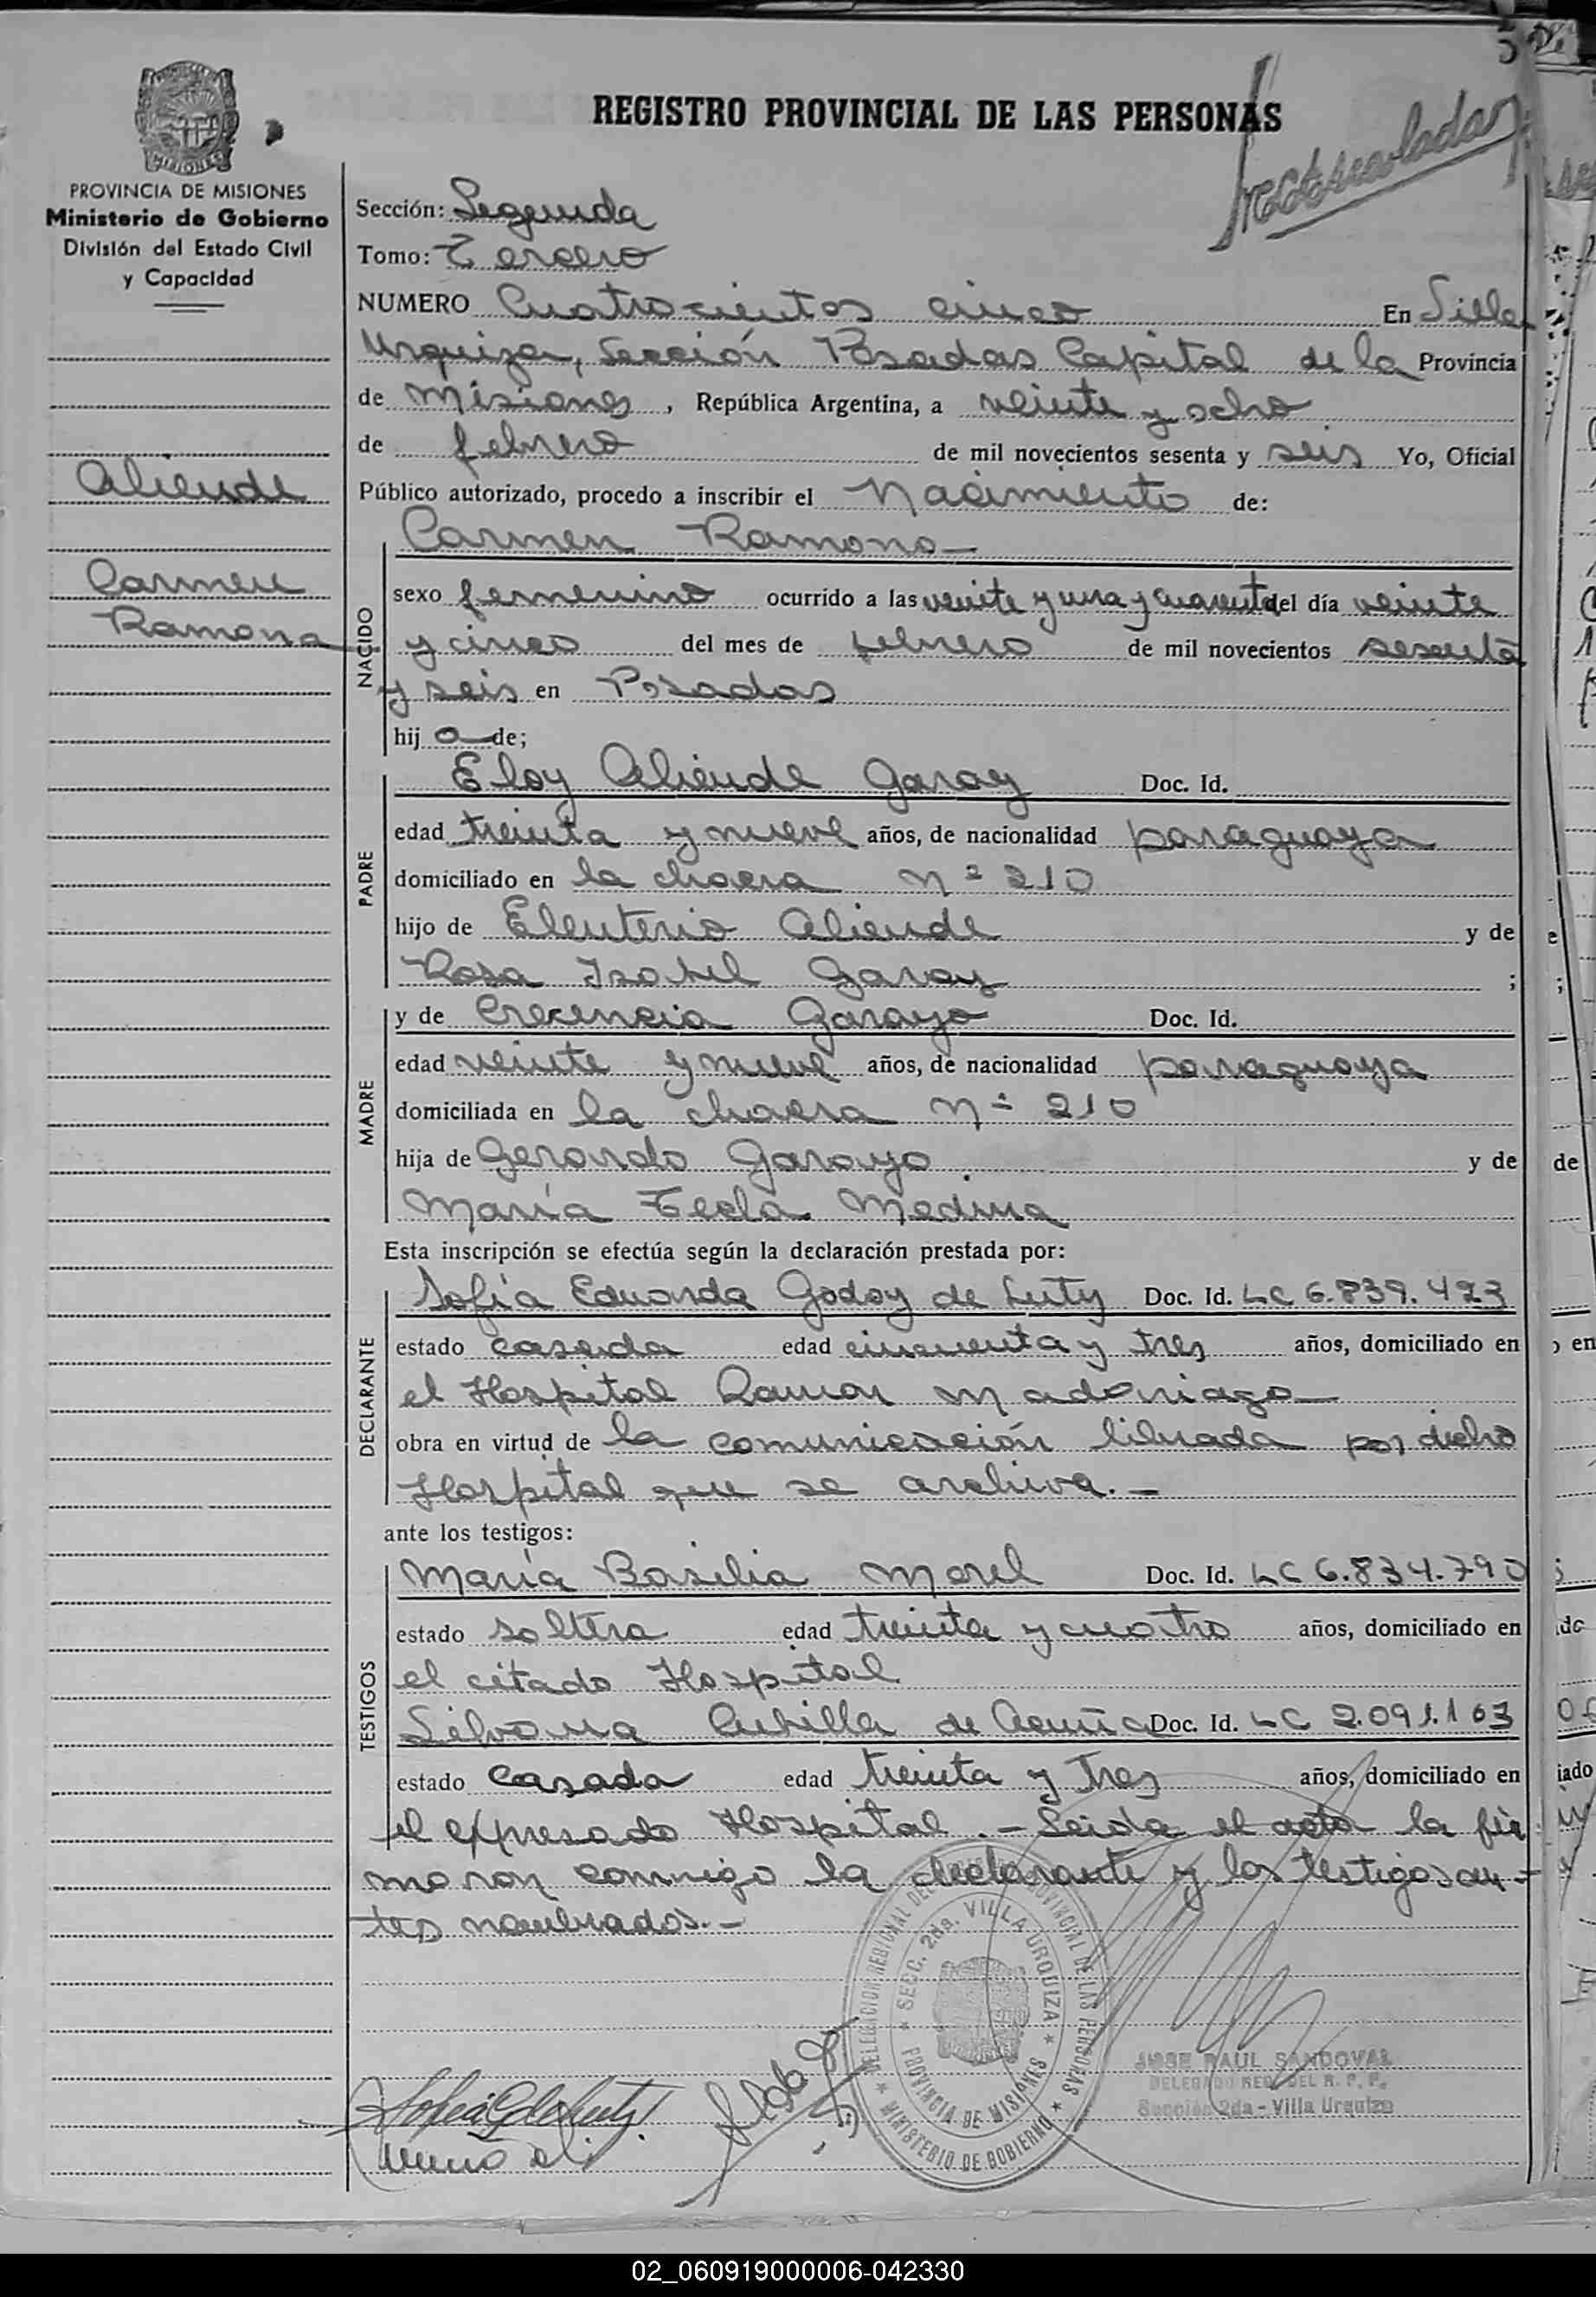 REGISTRO PROVINCIAL DE LAS PERSONAS
MISIONES
PROVINCIA DE MISIONES
Ministerio de Gobierno
División del Estado Civil
y Capacidad
Aliende
Carmen
Ramona
Sección: Segunda
Tomo: Tercero
NUMERO Cuatrocientos cinco En Villa
Urquiza, Sección Posadas Capital de la Provincia
de Misiones, República Argentina, a veinte y ocho
de febrero de mil novecientos sesenta y seis Yo, Oficial
Público autorizado, procedo a inscribir el Nacimiento de:
Carmen Ramona
NACIDO
sexo femenino ocurrido a las veinte y una y cuarenta del día veinte
y cinco del mes de febrero de mil novecientos sesenta
y seis en Posadas
hij a de;
PADRE
Eloy Aliende Garay Doc. Id.
edad treinta y nueve años, de nacionalidad paraguaya
domiciliado en la chacra nº 210
hijo de Eleuterio Aliende y de
Rosa Isabel Garay ;
MADRE
y de Crecencia Garayo Doc. Id.
edad veinte y nueve años, de nacionalidad paraguaya
domiciliada en la chacra nº 210
hija de Gerardo Garayo y de
María Tecla Medina
Esta inscripción se efectúa según la declaración prestada por:
DECLARANTE
Sofía Eduarda Godoy de Luty Doc. Id. LC 6.839.423
estado casada edad cincuenta y tres años, domiciliado en
el Hospital Ramon Madariaga
obra en virtud de la comunicación librada por dicho
Hospital que se archiva.-
ante los testigos:
TESTIGOS
María Basilia Morel Doc. Id. LC 6.834.790
estado soltera edad treinta y cuatro años, domiciliado en
el citado Hospital
Silvana Cubilla de Acuña Doc. Id. LC 2.091.163
estado casada edad treinta y tres años, domiciliado en
el expresado Hospital.- Leida el acta la fir
maron conmigo la declarante y los testigos an-
tes nombrados.-
DELEGACION REGIONAL DEL REGISTRO PROVINCIAL DE LAS PERSONAS
SECC. 2da. VILLA URQUIZA
PROVINCIA DE MISIONES
MINISTERIO DE GOBIERNO
JOSE RAUL SANDOVAL
DELEGADO REG. DEL R. P. P.
Sección 2da - Villa Urquiza
02_060919000006-042330